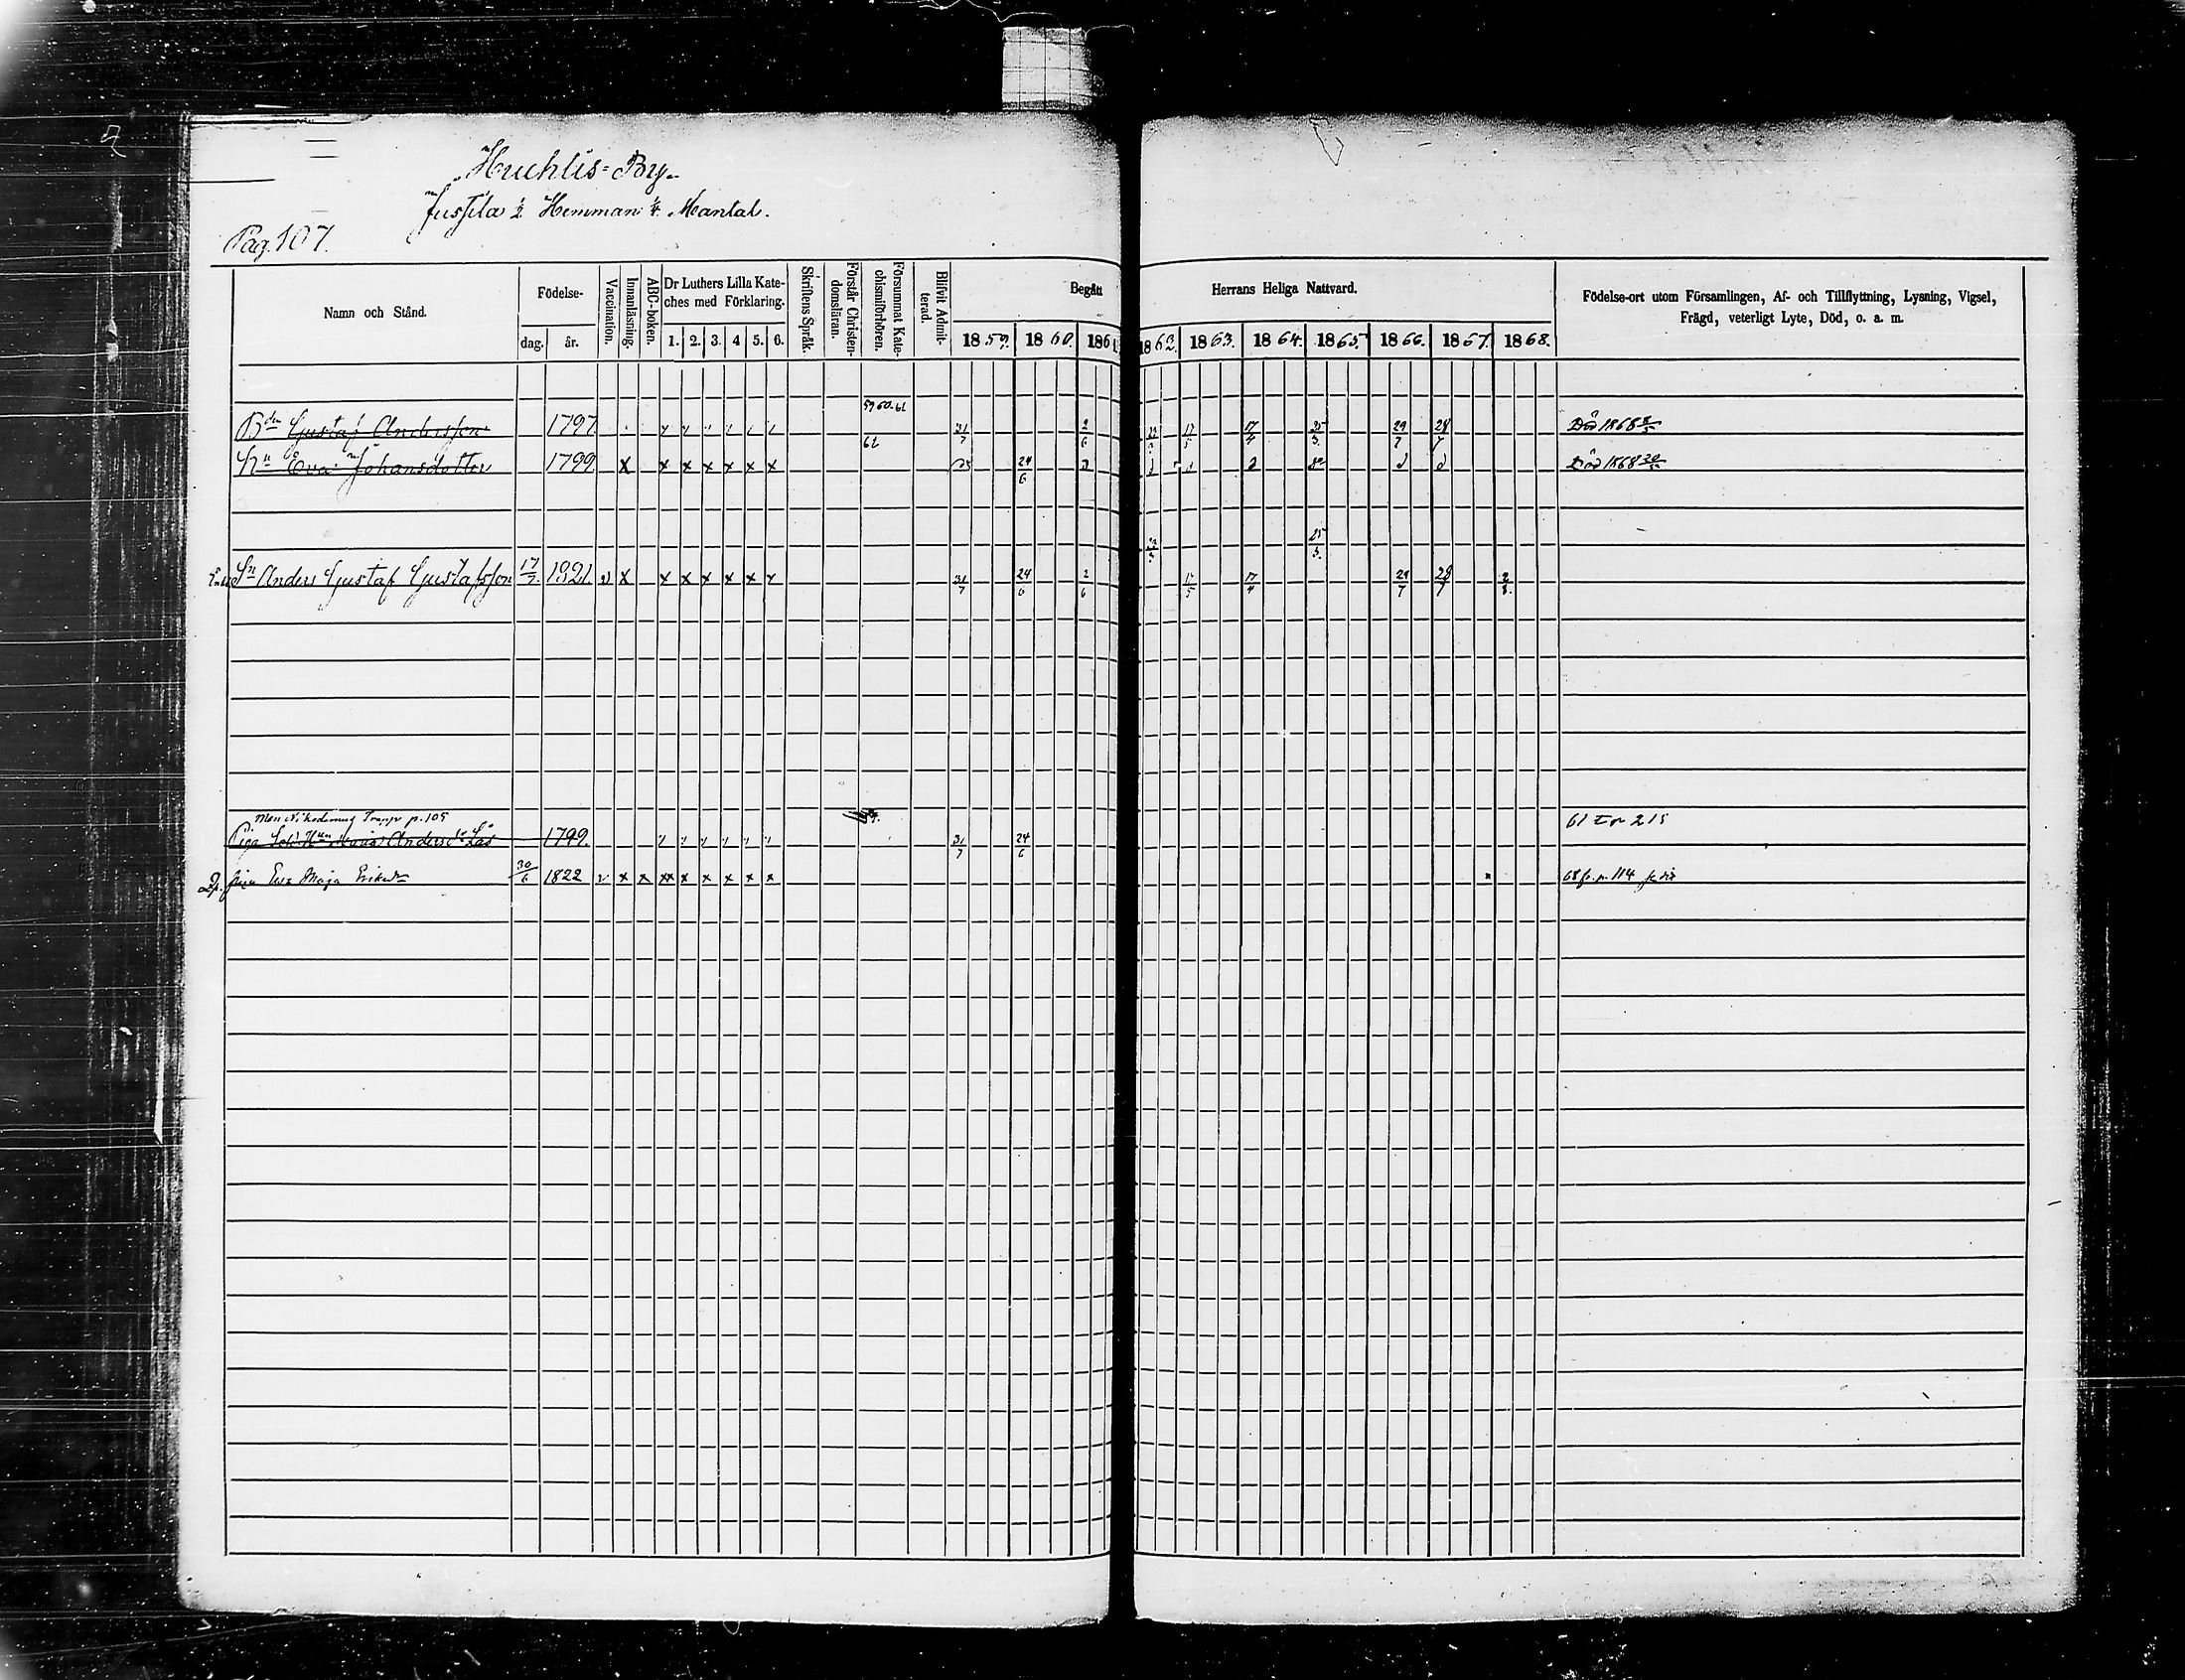 Huchtis=By.
Jussila ½ Hemman ¼ Mantal.
Pag. 107.
Namn och Stånd.
Födelse-
dag. år.
Vaccination.
Innanläsning.
ABC-boken.
Dr Luthers Lilla Kateches med Förklaring.
1. 2. 3. 4 5. 6.
Skriftens Språk.
Förstår Christendomsläran.
Försummat Katechismiförhören.
Blifvit Admitterad.
Begått Herrans Heliga Nattvard.
1859. 1860. 1861 1862. 1863. 1864. 1865. 1866. 1867. 1868.
Födelse-ort utom Församlingen, Af- och Tillflyttning, Lysning, Vigsel,
Frägd, veterligt Lyte, Död, o. a. m.
59 60. 61
Bdn Gustaf Andersson 1797 62 31/7 2/6 17/5 17/4 25/3 29/7 28/7 Död 1868
Hu Eva Johansdotter 1799 x x x x x x x 24/6 Död 1868
25/3
Sn Anders Gustaf Gustafsson 17/7 1821 v x x x x x x x 31/7 24/6 2/6 17/5 17/4 29/7 28/7
Nikodemus p. 105
Piga Maria Anders 1799. 31/7 24/6 61 215
Eva Maja Eriksdr 30/6 1822 v x x x x x x x x 68 fr. p. 114